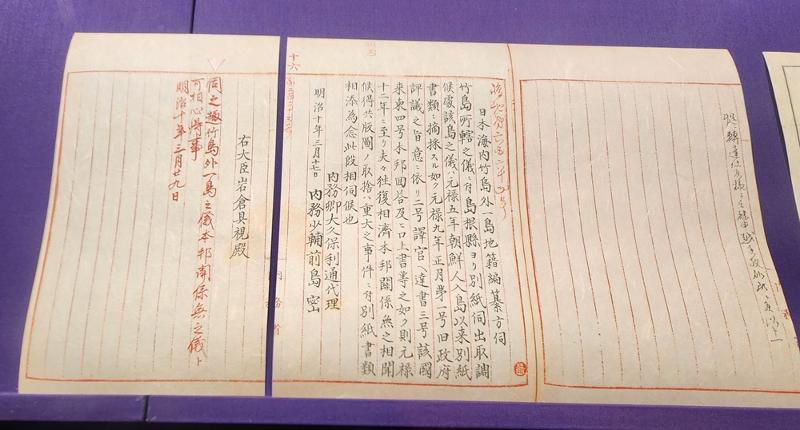 日本海内竹島外一島地籍編纂方伺
竹島所轄之儀ニ付島根縣ヨリ別紙伺出取調
候處該島之儀ハ元禄五年朝鮮人入島以来別紙
書類ニ摘採スル如ク元禄九年正月第一号旧政府
評議之旨意ニ依リ二号譯官ヘ達書三号該國
来柬四号本邦回答及ヒ口上書等之如ク則元禄
十二年ニ至リ夫々往復相濟本邦関係無之相聞
候得共版圖ノ取捨ハ重大之事件ニ付別紙書類
相添為念此段相伺候也
内務卿大久保利通代理
明治十年三月十七日 内務少輔前島密
右大臣岩倉具視殿
伺之趣竹島外一島之儀本邦関係無之儀ト
可相心得事
明治十年三月廿九日